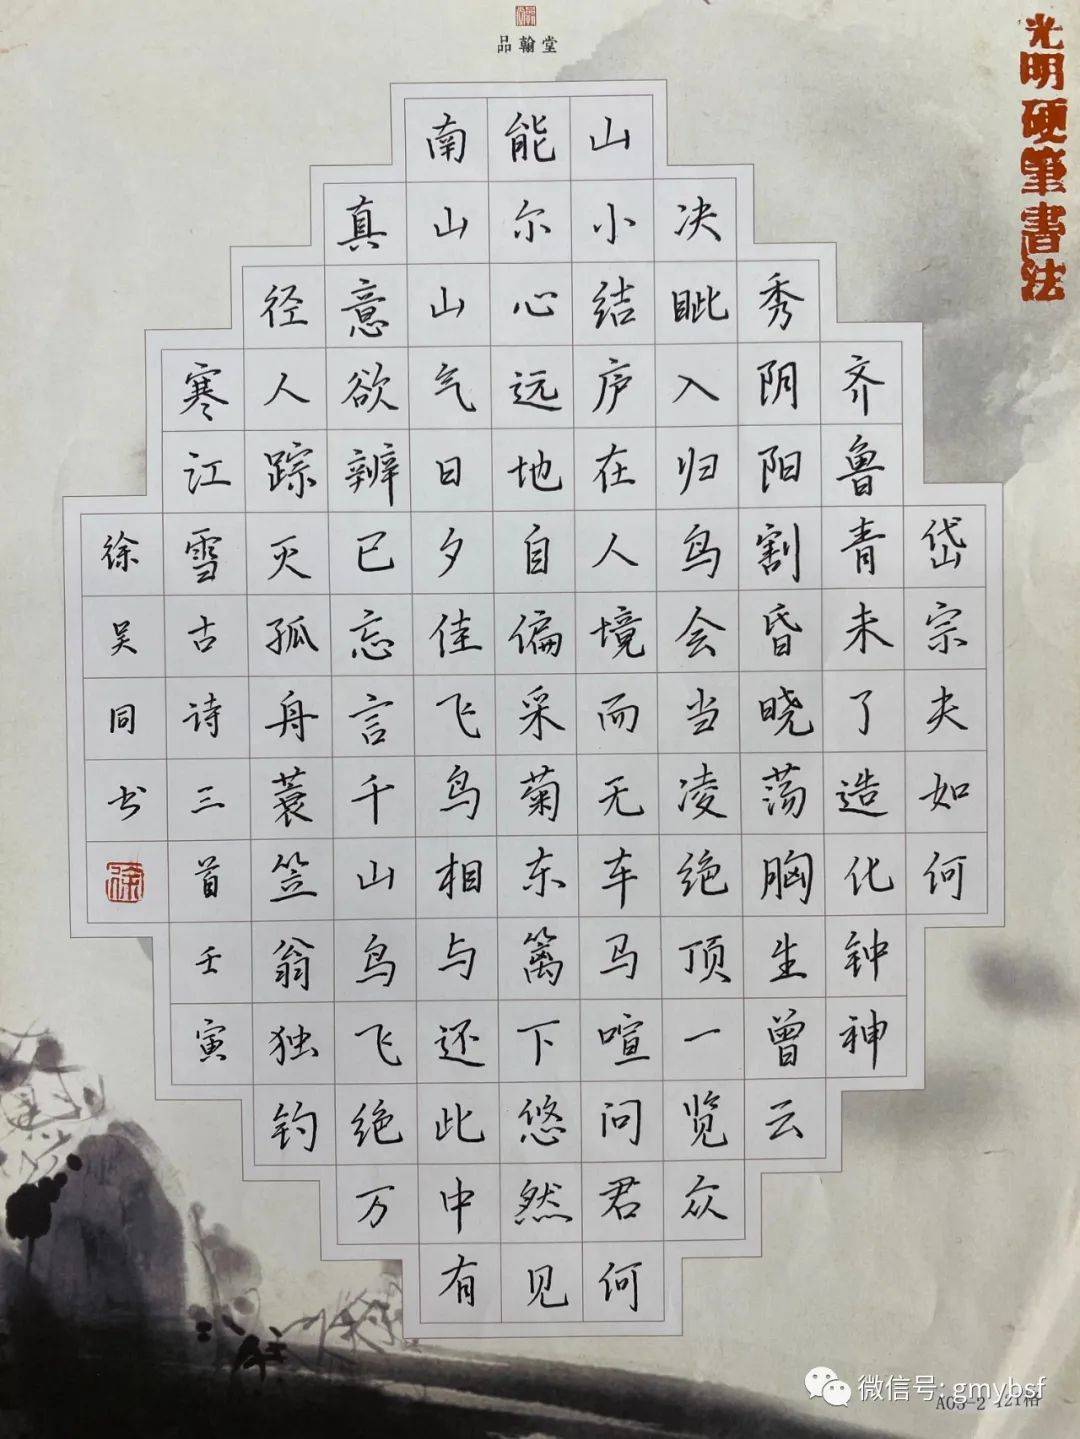 品翰堂
光明硬筆書法
岱宗夫如何
齐鲁青未了造化钟神
秀阴阳割昏晓荡胸生曾云
决眦入归鸟会当凌绝顶一览众
山小结庐在人境而无车马喧问君何
能尔心远地自偏采菊东篱下悠然见
南山山气日夕佳飞鸟相与还此中有
真意欲辨已忘言千山鸟飞绝万
径人踪灭孤舟蓑笠翁独钓
寒江雪古诗三首壬寅
徐吴同书
徐
微信号: gmybsf
A03-2 121格